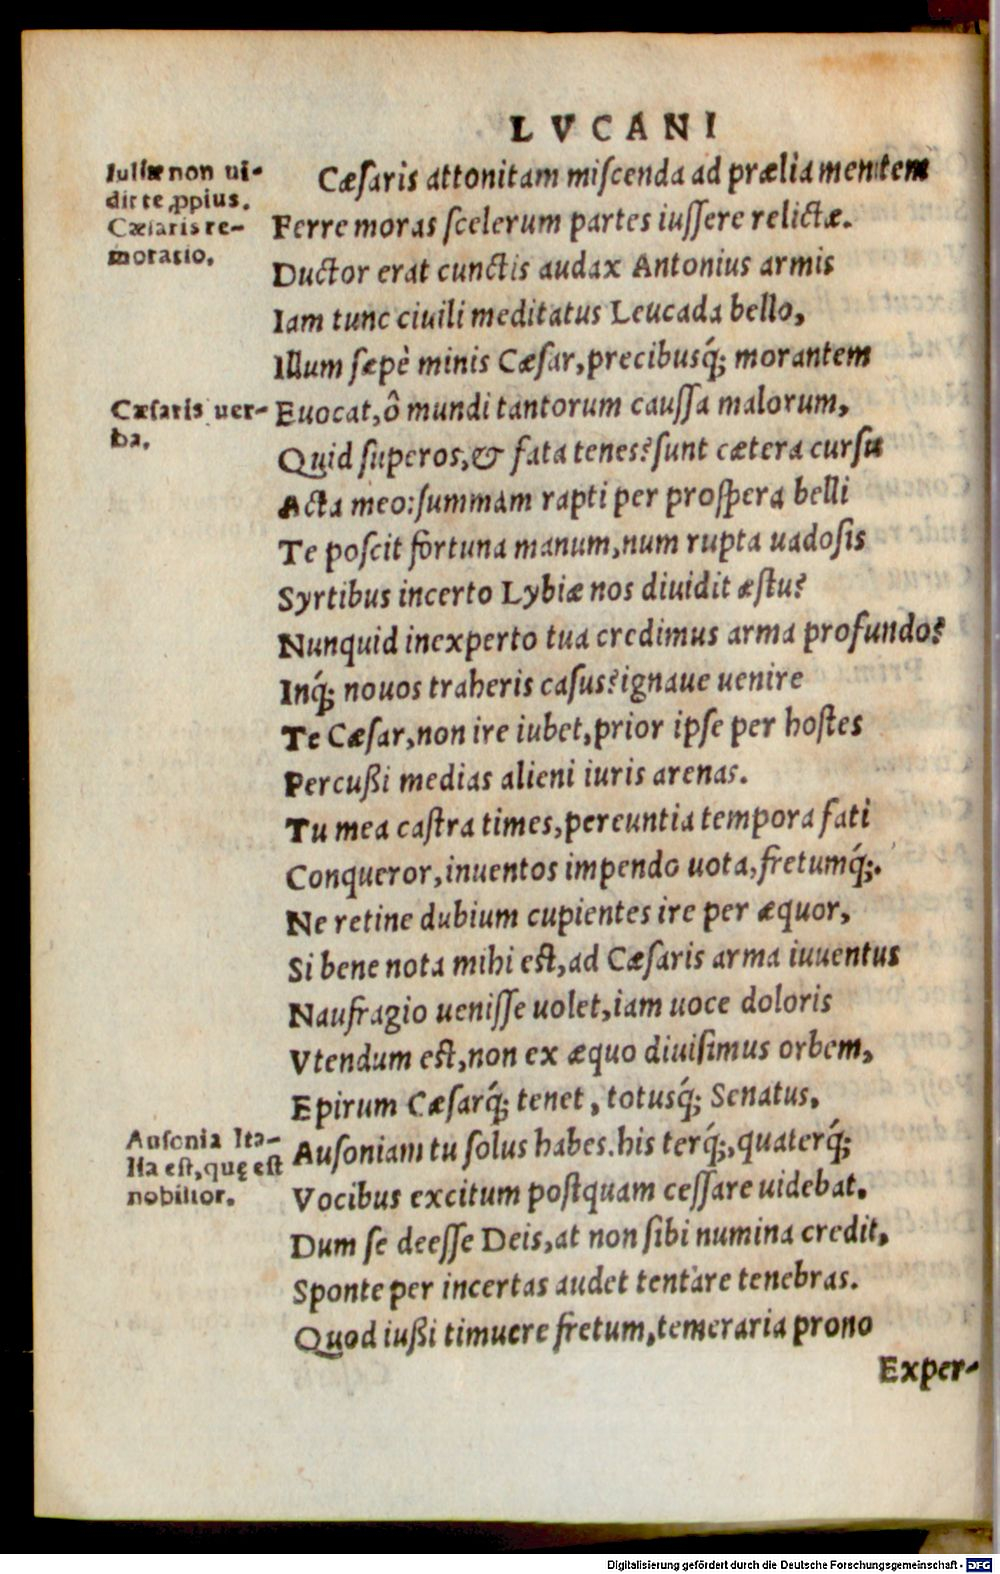 LVCANI
Iuliæ non ui-
dit te ꝓpius.
Cæsaris re-
moratio.
Cæſaris attonitam miſcenda ad prælia mentem
Ferre moras ſcelerum partes iuſſere relictæ.
Ductor erat cunctis audax Antonius armis
Iam tunc ciuili meditatus Leucada bello,
Illum ſæpè minis Cæſar, precibusq́; morantem
Cæsaris uer-
ba.
Euocat, ô mundi tantorum cauſſa malorum,
Quid ſuperos, & fata tenes? ſunt cætera curſu
Acta meo: ſummam rapti per proſpera belli
Te poſcit fortuna manum, num rupta uadoſis
Syrtibus incerto Lybiæ nos diuidit æſtu?
Nunquid inexperto tua credimus arma profundo?
Inq́; nouos traheris caſus? ignaue uenire
Te Cæſar, non ire iubet, prior ipſe per hoſtes
Percußi medias alieni iuris arenas.
Tu mea caſtra times, pereuntia tempora fati
Conqueror, inuentos impendo uota, fretumq́;.
Ne retine dubium cupientes ire per æquor,
Si bene nota mihi eſt, ad Cæſaris arma iuuentus
Naufragio ueniſſe uolet, iam uoce doloris
Vtendum eſt, non ex æquo diuiſimus orbem,
Epirum Cæſarq́; tenet, totusq́; Senatus,
Ausonia Ita-
lia eſt, quę eſt
nobilior.
Auſoniam tu ſolus habes. his terq́;, quaterq́;
Vocibus excitum poſtquam ceſſare uidebat.
Dum ſe deeſſe Deis, at non ſibi numina credit,
Sponte per incertas audet tentare tenebras.
Quod iußi timuere fretum, temeraria prono
Exper-
Digitalisierung gefördert durch die Deutsche Forschungsgemeinschaft - DFG